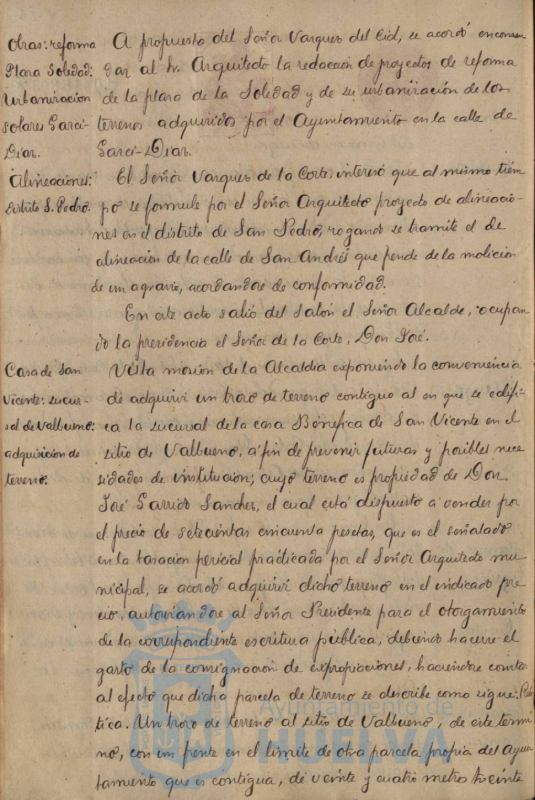 Obras: reforma
Plaza Soledad:
Urbanizacion
solares Garci-
Diaz.
A propuesta del Señor Vazquez del Cid, se acordó encomen
dar al Sr. Arquitecto la redaccion de proyectos de reforma
de la plaza de la Soledad y de su urbanización de los
terrenos adquiridos por el Ayuntamiento en la calle de
Garci-Diaz.
Alineaciones:
Distrito S. Pedro.
El Señor Vazquez de la Corte, interesó que al mismo tiem
po se formule por el Señor Arquitecto proyecto de alineacio-
nes en el distrito de San Pedro, rogando se tramite el de
alineación de la calle de San Andrés que pende de la
de un agravio, acordandose de conformidad.
En este acto salió del salón el Señor Alcalde, ocupan
do la presidencia el Señor de la Corte, Don José.
Casa de San
Vicente: sucur-
sal de Valbueno:
adquisicion de
terreno.
Vista mocion de la Alcaldia exponiendo la conveniencia
de adquirir un trozo de terreno contiguo al en que se edifi-
ca la sucursal de la casa Benefica de San Vicente en el
sitio de Valbueno, a fin de prevenir futuras y posibles nece
sidades de institucion; cuyo terreno es propiedad de Don
José Garrido Sandez, el cual está dispuesto a vender por
el precio de setecientas cincuenta pesetas, que es el señalado
en la tasacion pericial practicada por el Señor Arquitecto mu
nicipal, se acordó adquirir dicho terreno en el indicado pre
cio, autorizandose al Señor Presidente para el otorgamiento
de la correspondiente escritura pública, debiendo hacerse el
gasto de la consignacion de expropiaciones, haciendose constar
al efecto que dicha parcela de terreno se describe como sigue: Rús
tica. Un trozo de terreno al sitio de Valbueno, de este térmi
no, con un frente en el límite de otra parcela propia del Ayun
tamiento que es contigua, de veinte y cuatro metros treinta
Ayuntamiento de
HUELVA